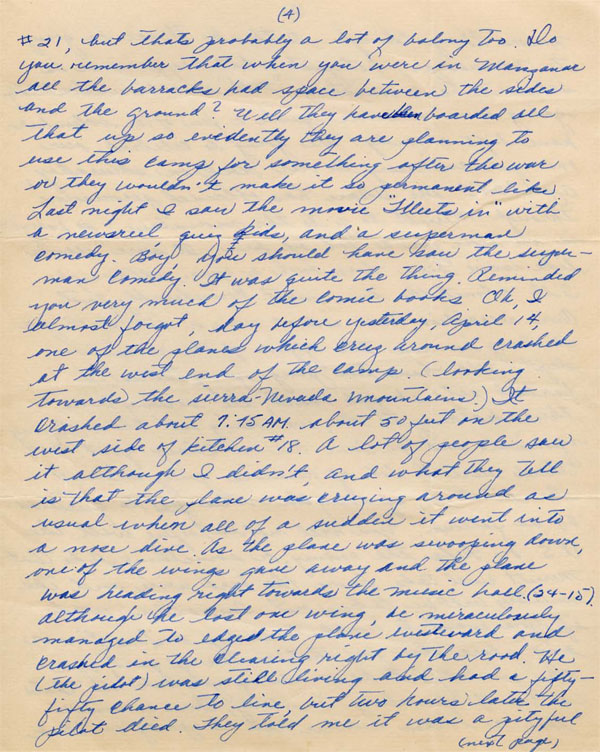 (4)
#21, but thats probably a lot of balony too. Do
you remember that when you were in Manzanar
all the barracks had space between the sides
and the ground? Well they have been boarded all
that up so evidently they are planning to
use this camp for something after the war
or they wouldn't make it so permanent like
Last night I saw the movie "Fleets in" with
a newsreel, quiz kids, and a superman
comedy. Boy you should have saw the super-
man comedy. It was quite the thing. Reminded
you very much of the comic books Oh, I
almost forgot, day before yesterday, April 14,
one of the planes which cruz around crashed
at the west end of the camp. (looking
towards the sierra-Nevada mountains.) It
crashed about 7:15 AM. about 50 feet on the
west side of kitchen #18. A lot of people saw
it although I didn't, and what they tell
is that the plane was cruzing around as
usual when all of a sudden it went into
a nose dive. As the plane was swooping down,
one of the wings gave away and the plane
was heading right towards the music hall. (24-15).
although he lost one wing, he miraculously
managed to edged the plane westward and
crashed in the clearing right by the road. He
(the pilot) was still living and had a fifty-
fifty chance to live, but two hours later the
pilot died. They told me it was a pityful
(next page)